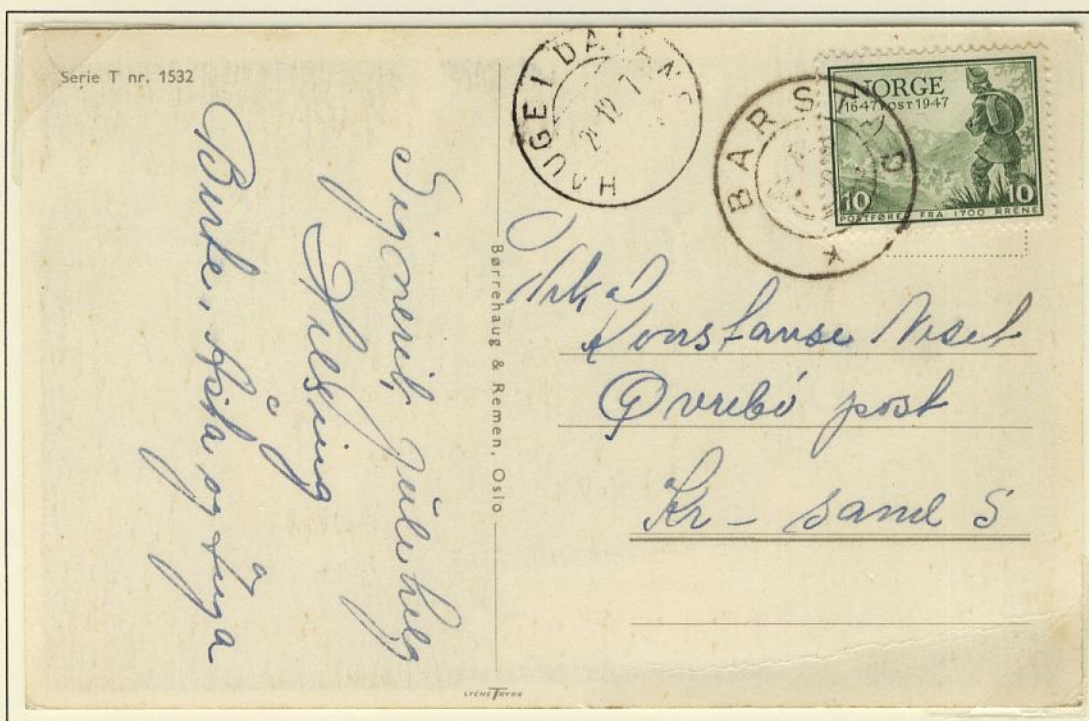 Serie T nr. 1532
Signerit, julehelg
Helsing
Berte, Åsta og Inga
Børrehaug & Remen, Oslo
HAUGEI DALANE
BARSTAD
NORGE
1647 POST 1947
10 10
POSTFØRER FRA 1700 ÅRENE
Konstanse
Øvrebö post
Kr - sand S